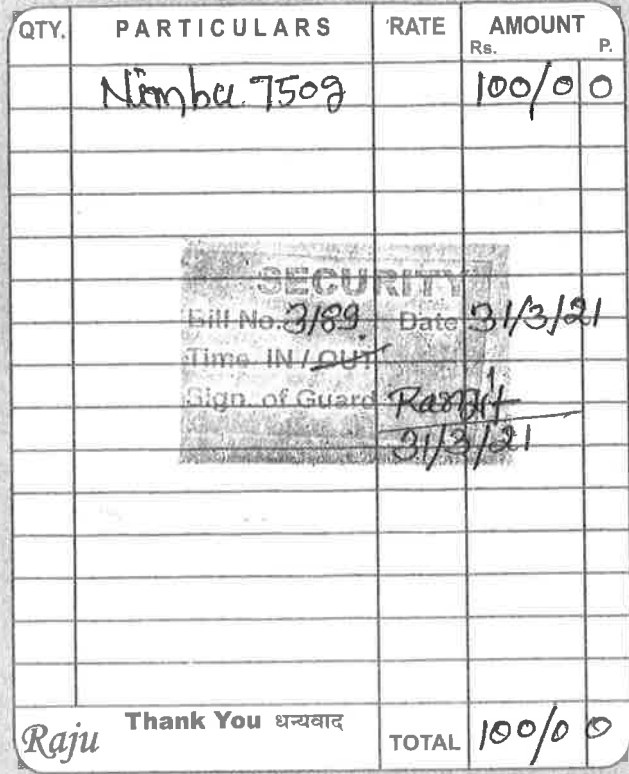 QTY. PARTICULARS RATE AMOUNT
Rs. P.
Nimbu 750g 100/0 0
SECURITY
Bill No. 3189 Date 31/3/21
Time IN / OUT
Sign. of Guard Ranjit
31/3/21
Thank You धन्यवाद
Raju TOTAL 100/0 0